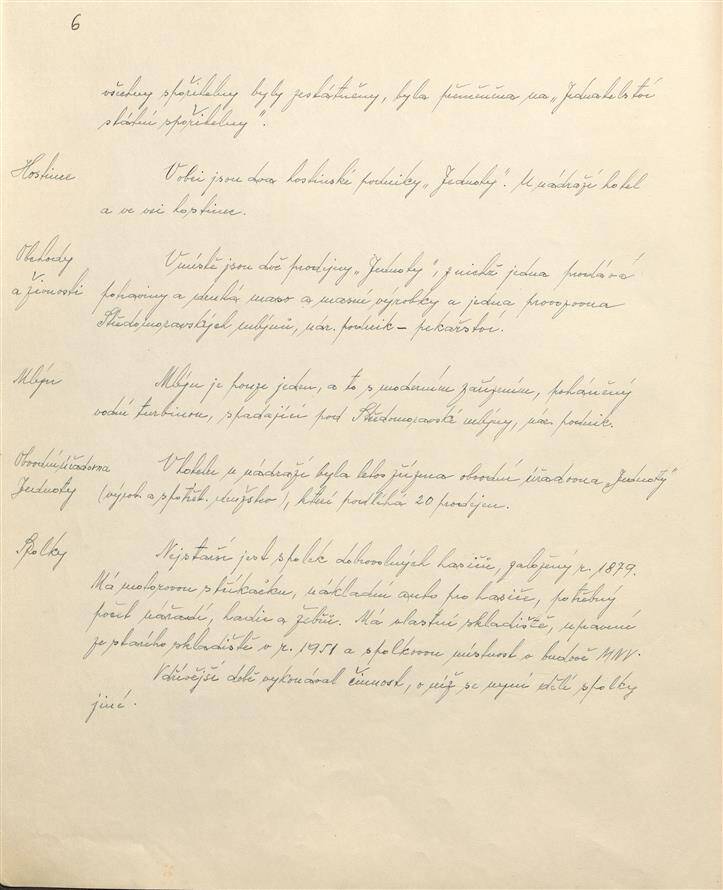 6
všechny spořitelny byly zestátněny, byla přeměněna na „Jednatelství
státní spořitelny".
Hostince
V obci jsou dva hostinské podniky „Jednoty". U nádraží hotel
a ve vsi hostinec.
Obchody
a živnosti
V místě jsou dvě prodejny „Jednoty", z nichž jedna prodává
potraviny a druhá maso a masné výrobky a jedna provozovna
Středomoravských mlýnů, nár. podnik – pekařství.
Mlýn
Mlýn je pouze jeden, a to s moderním zařízením, poháněný
vodní turbinou, spadající pod Středomoravské mlýny, nár. podnik.
Obvodní úřadovna
Jednoty
V hotelu u nádraží byla letos zřízena obvodní úřadovna „Jednoty"
(výrob. a spotřeb. družstvo), které podléhá 20 prodejen.
Spolky
Nejstarší jest spolek dobrovolných hasičů, založený r. 1879.
Má motorovou stříkačku, nákladní auto pro hasiče, potřebný
počet nářadí, hadic a žebřů. Má vlastní skladiště, upravené
ze starého skladiště v r. 1951 a spolkovou místnost v budově MNV.
V dřívější době vykonával činnost, o níž se nyní dělí spolky
jiné.